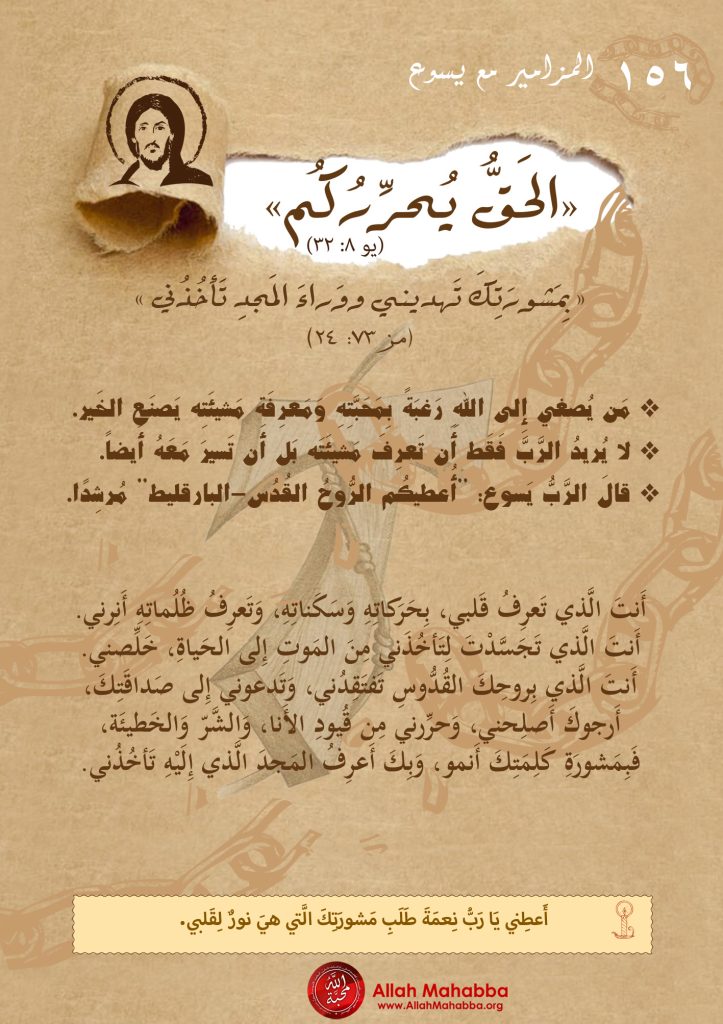 ١٥٦ المزامير مع يسوع
«الحَقُّ يُحرِّرُكُم»
(يو ٨: ٣٢)
« بِمَشورَتِكَ تَهديني ووَراءَ المَجدِ تَأخُذُني »
(مز ٧٣: ٢٤)
❖ مَن يُصغي إلى اللهِ رَغبَةً بِمَحَبَّتِهِ وَمَعرِفَةِ مَشيئَتِه يَصنَعِ الخَير.
❖ لا يُريدُ الرَّبُّ فَقَط أَن تَعرِفَ مَشيئَتَه بَل أَن تَسيرَ مَعَهُ أَيضاً.
❖ قالَ الرَّبُّ يَسوع: "أُعطيكُم الرُّوحُ القُدُس-البارقليط" مُرشِدًا.
أَنتَ الَّذي تَعرِفُ قَلبي، بِحَرَكاتِهِ وَسَكَناتِهِ، وَتَعرِفُ ظُلُماتِهِ أَنِرني.
أَنتَ الَّذي تَجَسَّدْتَ لِتَأخُذَني مِنَ المَوتِ إلى الحَياةِ، خَلِّصني.
أَنتَ الَّذي بِروحِكَ القُدُّوسِ تَفتَقدُني، وَتَدعوني إلى صَداقَتِكَ،
أَرجوكَ أَصلِحني، وَحرِّرني مِن قُيودِ الأَنا، وَالشَّرّ وَالخَطيئَة،
فَبِمَشورَةِ كَلِمَتِكَ أَنمو، وَبِكَ أَعرِفُ المَجدَ الَّذي إِلَيْهِ تَأخُذُني.
أَعطِني يَا رَبُّ نِعمَةَ طَلَبِ مَشورَتِكَ الَّتي هيَ نورٌ لِقَلبي.
الله محبة
Allah Mahabba
www.AllahMahabba.org